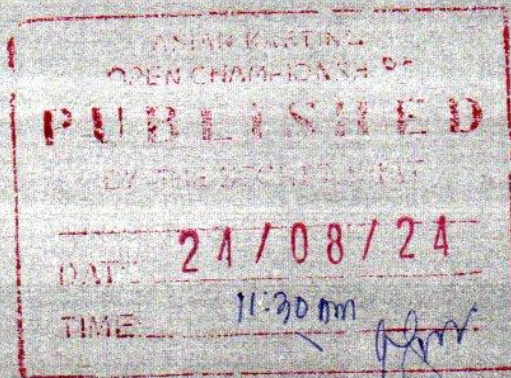 ASIAN KARTING
OPEN CHAMPIONSHIP
PUBLISHED
BY THE SECRETARIAT
DATE: 24/08/24
TIME: 11:30 am